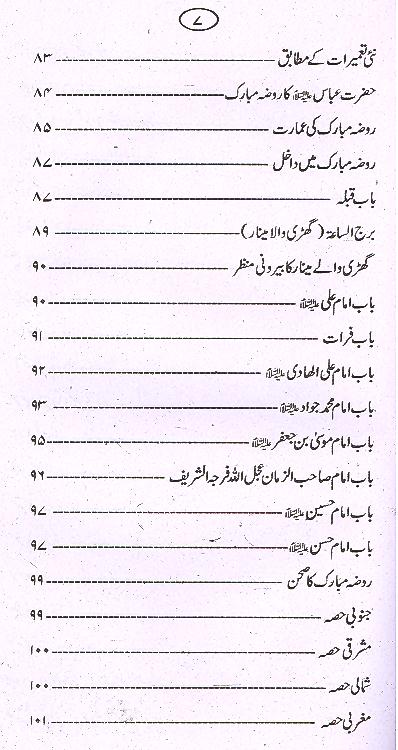 ۷
نئی تعمیرات کے مطابق ۸۳
حضرت عباس علیہ السلام کا روضہ مبارک ۸۴
روضہ مبارک کی عمارت ۸۵
روضہ مبارک میں داخل ۸۷
باب قبلہ ۸۷
برج الساعۃ (گھڑی والا مینار) ۸۹
گھڑی والے مینار کا بیرونی منظر ۹۰
باب امام علی علیہ السلام ۹۰
باب فرات ۹۱
باب امام علی الھادی علیہ السلام ۹۲
باب امام محمد جواد علیہ السلام ۹۳
باب امام موسیٰ بن جعفر علیہ السلام ۹۵
باب امام صاحب الزمان عجل اللہ فرجہ الشریف ۹۶
باب امام حسین علیہ السلام ۹۷
باب امام حسن علیہ السلام ۹۷
روضہ مبارک کا صحن ۹۹
جنوبی حصہ ۹۹
مشرقی حصہ ۱۰۰
شمالی حصہ ۱۰۰
مغربی حصہ ۱۰۱